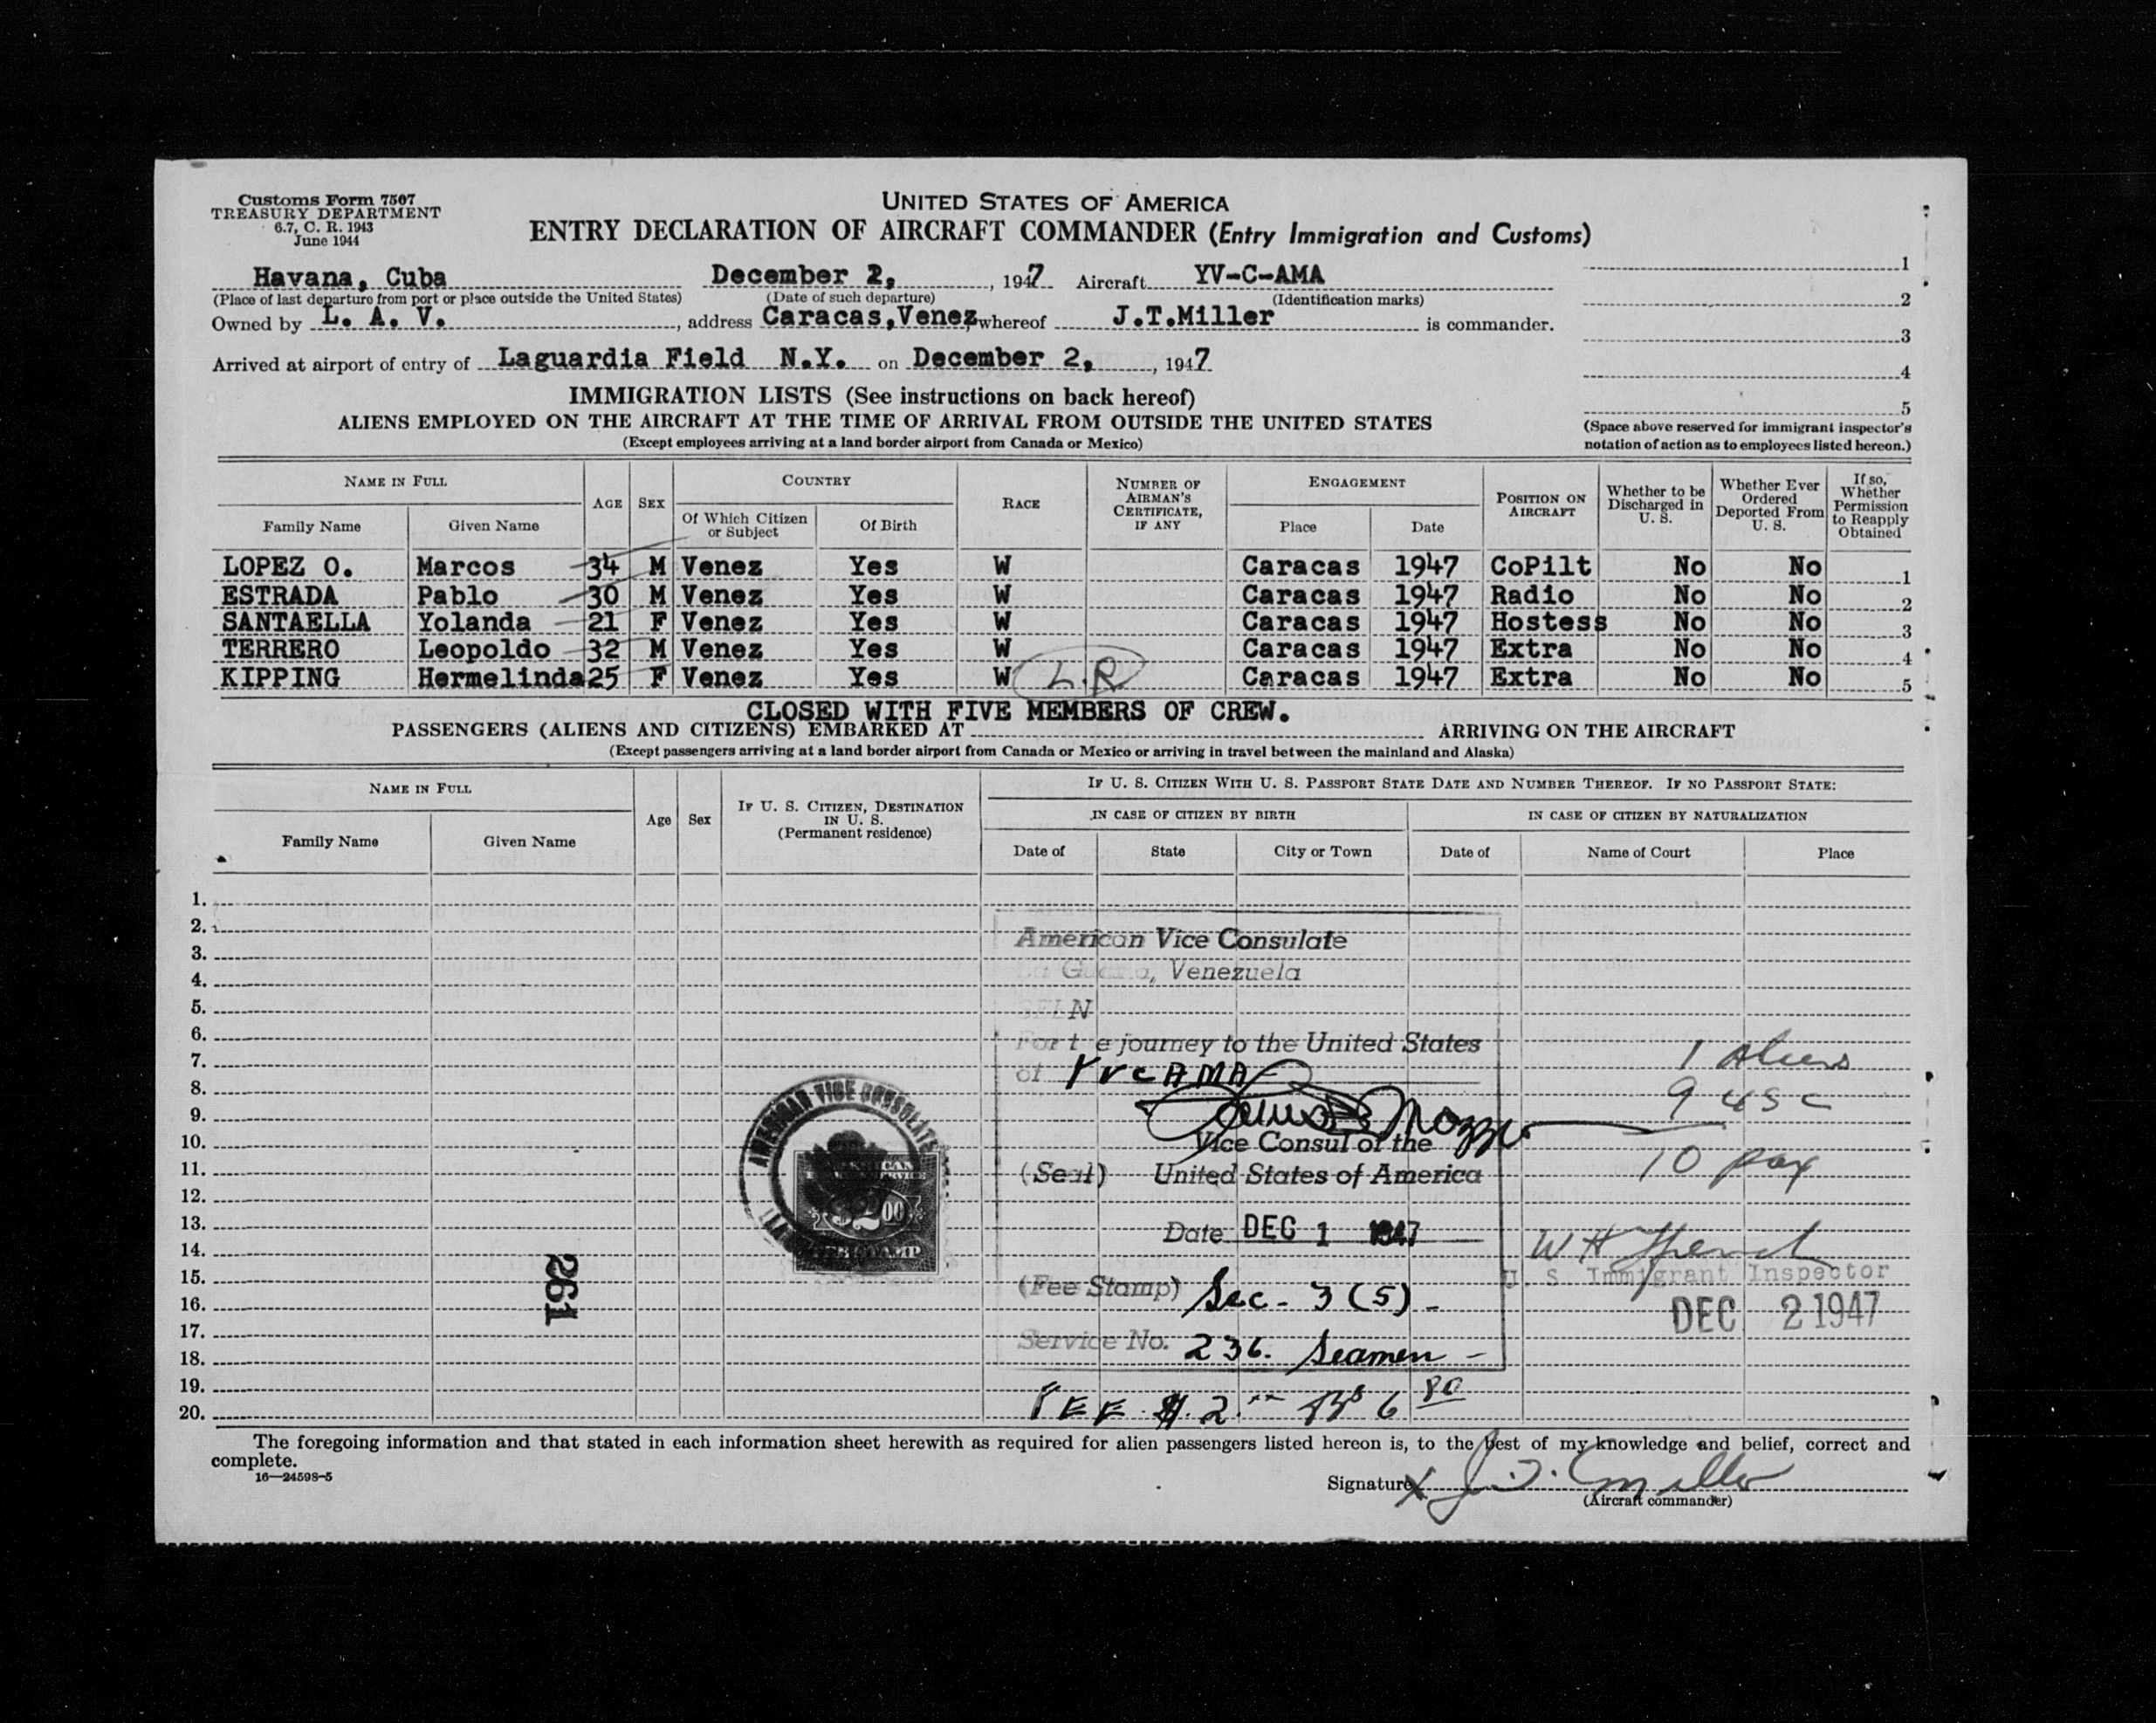 Customs Form 7507
TREASURY DEPARTMENT
6.7, C. R. 1943
June 1944
UNITED STATES OF AMERICA
ENTRY DECLARATION OF AIRCRAFT COMMANDER (Entry Immigration and Customs)
Havana, Cuba December 2, , 1947 Aircraft YV-C-AMA
(Place of last departure from port or place outside the United States) (Date of such departure) (Identification marks)
Owned by L. A. V. , address Caracas, Venez, whereof J.T.Miller is commander.
Arrived at airport of entry of Laguardia Field N.Y. on December 2, , 1947
1
2
3
4
5
(Space above reserved for immigrant inspector's
notation of action as to employees listed hereon.)
IMMIGRATION LISTS (See instructions on back hereof)
ALIENS EMPLOYED ON THE AIRCRAFT AT THE TIME OF ARRIVAL FROM OUTSIDE THE UNITED STATES
(Except employees arriving at a land border airport from Canada or Mexico)
NAME IN FULL AGE SEX COUNTRY RACE NUMBER OF AIRMAN'S CERTIFICATE, IF ANY ENGAGEMENT POSITION ON AIRCRAFT Whether to be Discharged in U. S. Whether Ever Ordered Deported From U. S. If so, Whether Permission to Reapply Obtained
Family Name Given Name Of Which Citizen or Subject Of Birth Place Date
LOPEZ O. Marcos 34 M Venez Yes W Caracas 1947 CoPilt No No 1
ESTRADA Pablo 30 M Venez Yes W Caracas 1947 Radio No No 2
SANTAELLA Yolanda 21 F Venez Yes W Caracas 1947 Hostess No No 3
TERRERO Leopoldo 32 M Venez Yes W Caracas 1947 Extra No No 4
KIPPING Hermelinda 25 F Venez Yes W L.R. Caracas 1947 Extra No No 5
CLOSED WITH FIVE MEMBERS OF CREW.
PASSENGERS (ALIENS AND CITIZENS) EMBARKED AT ARRIVING ON THE AIRCRAFT
(Except passengers arriving at a land border airport from Canada or Mexico or arriving in travel between the mainland and Alaska)
NAME IN FULL Age Sex IF U. S. CITIZEN, DESTINATION IN U. S. (Permanent residence) IF U. S. CITIZEN WITH U. S. PASSPORT STATE DATE AND NUMBER THEREOF. IF NO PASSPORT STATE:
IN CASE OF CITIZEN BY BIRTH IN CASE OF CITIZEN BY NATURALIZATION
Family Name Given Name Date of State City or Town Date of Name of Court Place
1.
2.
3.
4.
5.
6.
7.
8.
9.
10.
11.
12.
13.
14.
15.
16.
17.
18.
19.
20.
American Vice Consulate
Venezuela
journey to the United States
of YVCAMA
Vice Consul of the
(Seal) United States of America
Date DEC 1 1947
(Fee Stamp) Sec. 3 (5) -
Service No. 236. Seamen -
FEE $ 2.00 Bs 6 80
AMERICAN VICE CONSULATE
$2.00
261
1 Aliens
9 USC
10 pax
W H
U. S. Immigrant Inspector
DEC 2 1947
The foregoing information and that stated in each information sheet herewith as required for alien passengers listed hereon is, to the best of my knowledge and belief, correct and
complete.
16—24598-5
Signature X J. T. Miller
(Aircraft commander)